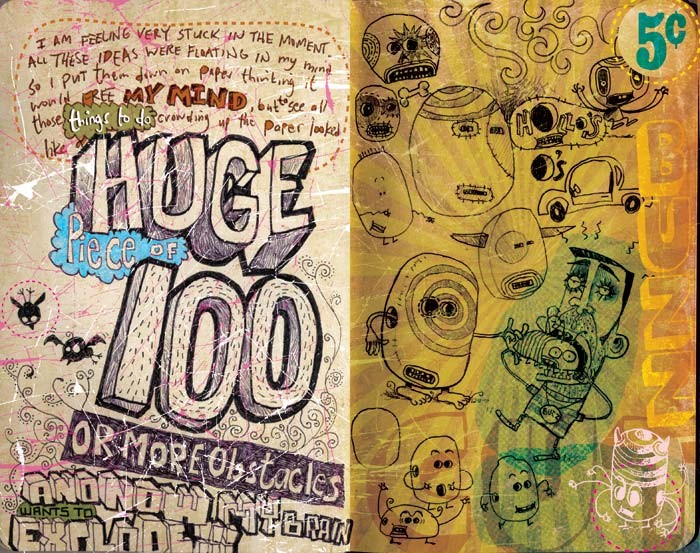 I AM FEELING VERY STUCK IN THE MOMENT
ALL THESE IDEAS WERE FLOATING IN my mind
So I put them down on paper thinking it
would FREE MY MIND, but to see all
those things to do crowding up the paper looked
like a
HUGE
Piece OF
100
OR MORE Obstacles
AND NOW MY BRAIN
WANTS TO
EXPLODE
5¢
HOLLOS
O's
BUZZ